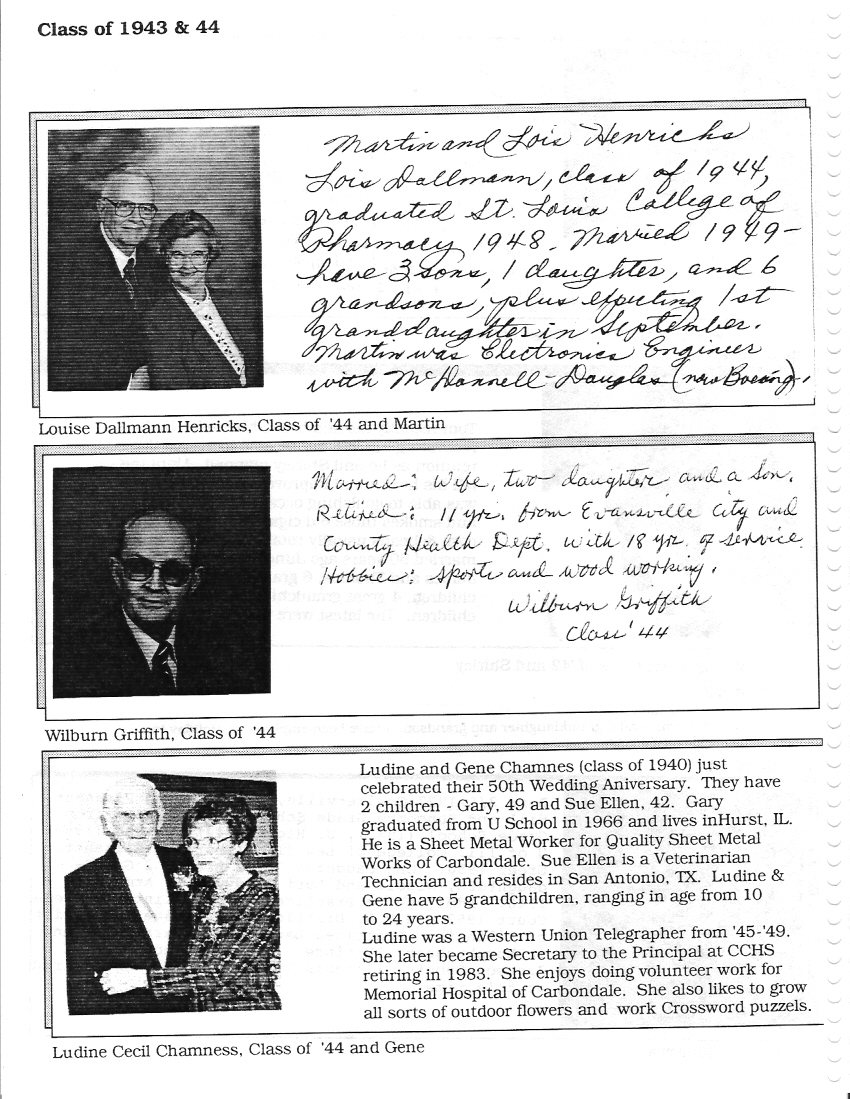 Class of 1943 & 44
Martin and Lois Henrichs
Lois Dallmann, class of 1944,
graduated St. Louis College of
Pharmacy 1948. Married 1949-
have 3 sons, 1 daughter, and 6
grandsons, plus expecting 1st
granddaughter in September.
Martin was Electronics Engineer
with McDonnell-Douglas (now Boeing).
Louise Dallmann Henricks, Class of '44 and Martin
Married: Wife, two daughters and a son.
Retired: 11 yrs. from Evansville City and
County Health Dept. with 18 yrs. of service
Hobbies: sports and wood working.
Wilburn Griffith
Class '44
Wilburn Griffith, Class of '44
Ludine and Gene Chamnes (class of 1940) just
celebrated their 50th Wedding Aniversary. They have
2 children - Gary, 49 and Sue Ellen, 42. Gary
graduated from U School in 1966 and lives inHurst, IL.
He is a Sheet Metal Worker for Quality Sheet Metal
Works of Carbondale. Sue Ellen is a Veterinarian
Technician and resides in San Antonio, TX. Ludine &
Gene have 5 grandchildren, ranging in age from 10
to 24 years.
Ludine was a Western Union Telegrapher from '45-'49.
She later became Secretary to the Principal at CCHS
retiring in 1983. She enjoys doing volunteer work for
Memorial Hospital of Carbondale. She also likes to grow
all sorts of outdoor flowers and work Crossword puzzels.
Ludine Cecil Chamness, Class of '44 and Gene